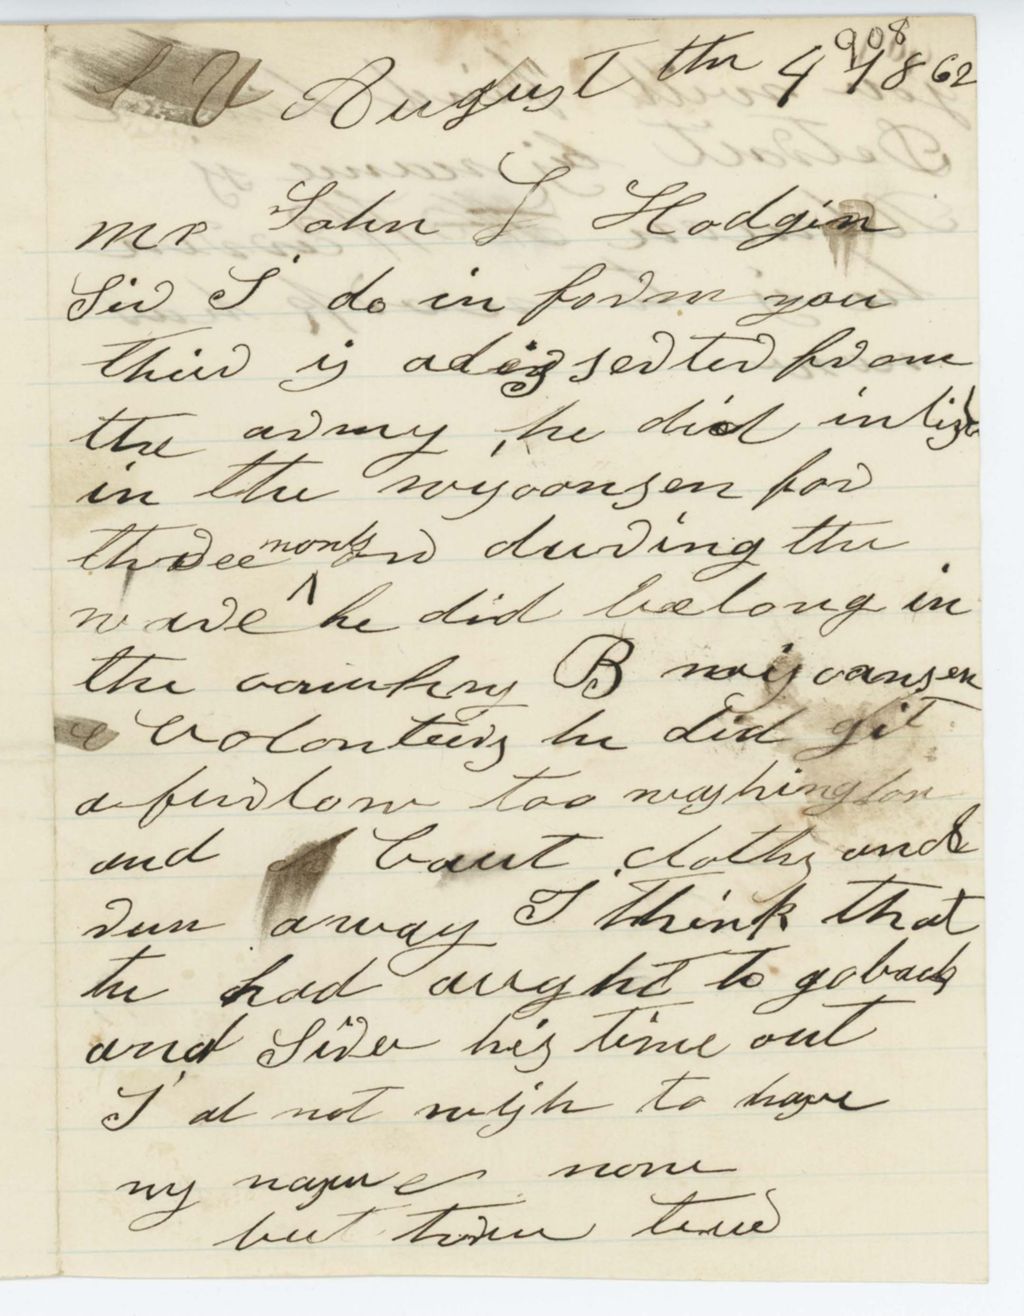 908
August th 4 1862
Mr John L Hodgin
Sir I do in form you
thire is a deisserter from
the army, he did inlist
in the wisconsen for
three monts or during the
ware he did belong in
the compny B wisconsen
volonteirs he did git
a furlow too washington
and baut cloths and
run away I think that
he had aught to go back
and Sirve his time out
I do not wish to have
my name none
but trou teued